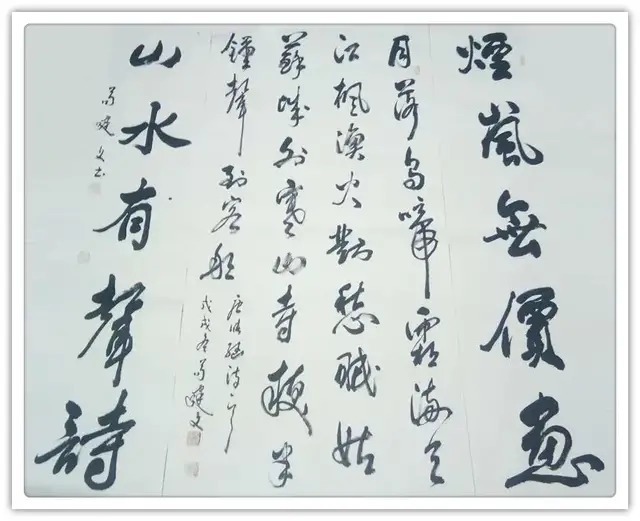 煙嵐無價畫
月落烏啼霜滿天
江楓漁火對愁眠姑
蘇城外寒山寺夜半
鐘聲到客船
唐張繼詩
戊戌冬
山水有聲詩